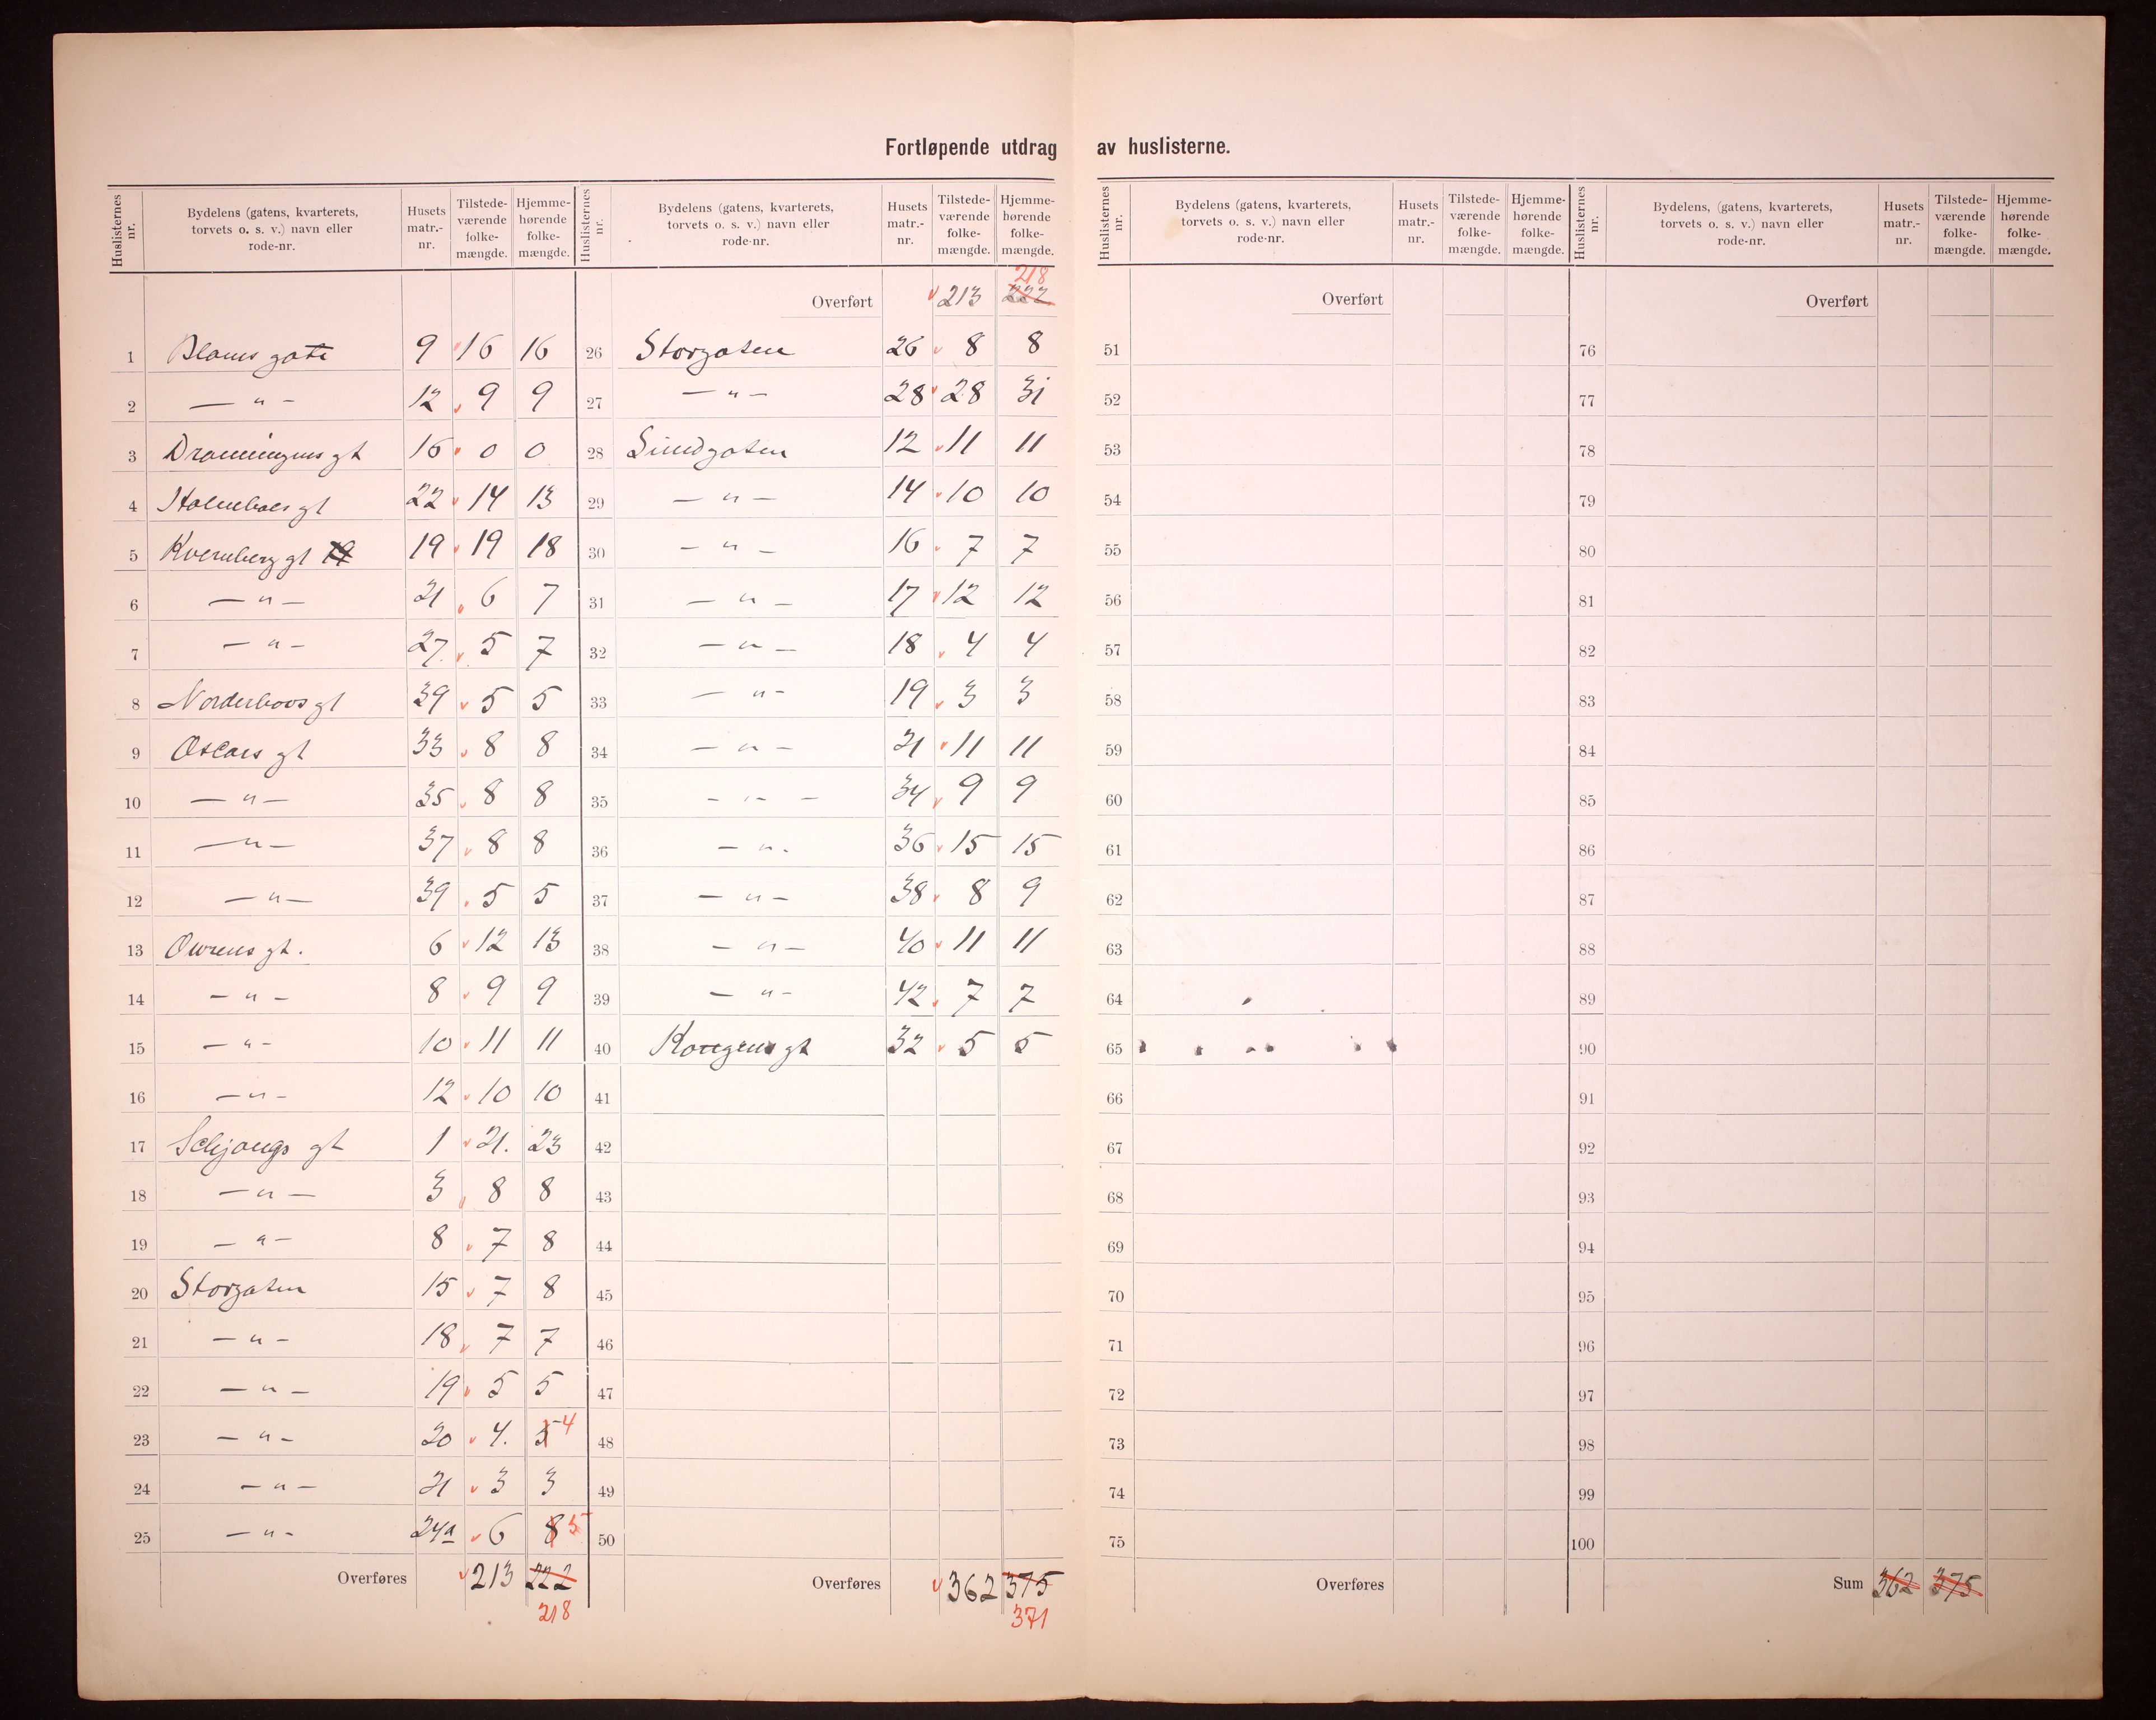 Fortløpende utdrag av huslisterne.
Huslisternes nr. | Bydelens (gatens, kvarterets, torvets o. s. v.) navn eller rode-nr. | Husets matr.-nr. | Tilstede-værende folke-mængde. | Hjemme-hørende folke-mængde.
1 Blaus gate 9 16 16
2 — " — 12 9 9
3 Dronningens gt 16 0 0
4 Holmboes gt 22 14 13
5 Kvernberg gt 19 19 18
6 — " — 21 6 7
7 — " — 27 5 7
8 39 5 5
9 Oscars gt 33 8 8
10 — " — 35 8 8
11 — " — 37 8 8
12 — " — 39 5 5
13 Owrens gt. 6 12 13
14 — " — 8 9 9
15 — " — 10 11 11
16 — " — 12 10 10
17 gt 1 21. 23
18 — " — 3 8 8
19 — " — 8 7 8
20 Storgaten 15 7 8
21 — " — 18 7 7
22 — " — 19 5 5
23 — " — 20 4. 5 4
24 — " — 21 3 3
25 — " — 24a 6 8 5
Overføres 213 222
218
Huslisternes nr. | Bydelens (gatens, kvarterets, torvets o. s. v.) navn eller rode-nr. | Husets matr.-nr. | Tilstede-værende folke-mængde. | Hjemme-hørende folke-mængde.
218
Overført 213 222
26 Storgaten 26 8 8
27 — " — 28 28 31
28 Sundgaten 12 11 11
29 — " — 14 10 10
30 — " — 16 7 7
31 — " — 17 12 12
32 — " — 18 4 4
33 — " — 19 3 3
34 — " — 21 11 11
35 — " — 34 9 9
36 — " — 36 15 15
37 — " — 38 8 9
38 — " — 40 11 11
39 — " — 42 7 7
40 Kongens gt 32 5 5
41
42
43
44
45
46
47
48
49
50
Overføres 362 375
371
Huslisternes nr. | Bydelens (gatens, kvarterets, torvets o. s. v.) navn eller rode-nr. | Husets matr.-nr. | Tilstede-værende folke-mængde. | Hjemme-hørende folke-mængde.
Overført
51
52
53
54
55
56
57
58
59
60
61
62
63
64
65
66
67
68
69
70
71
72
73
74
75
Overføres
Huslisternes nr. | Bydelens, (gatens, kvarterets, torvets o. s. v.) navn eller rode-nr. | Husets matr.-nr. | Tilstede-værende folke-mængde. | Hjemme-hørende folke-mængde.
Overført
76
77
78
79
80
81
82
83
84
85
86
87
88
89
90
91
92
93
94
95
96
97
98
99
100
Sum 362 375